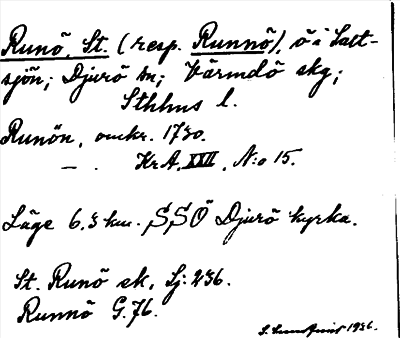 Runö, St. (resp. Runnö), ö i Salt-
sjön; Djurö sn; Värmdö skg;
Sthlms l.
Runön, omkr. 1730.
— . KrA. XXII, N:o 15.
Läge 6.3 km. SSÖ Djurö kyrka.
St. Runö sk, Sj: 236.
Runnö G. 76.
1936.